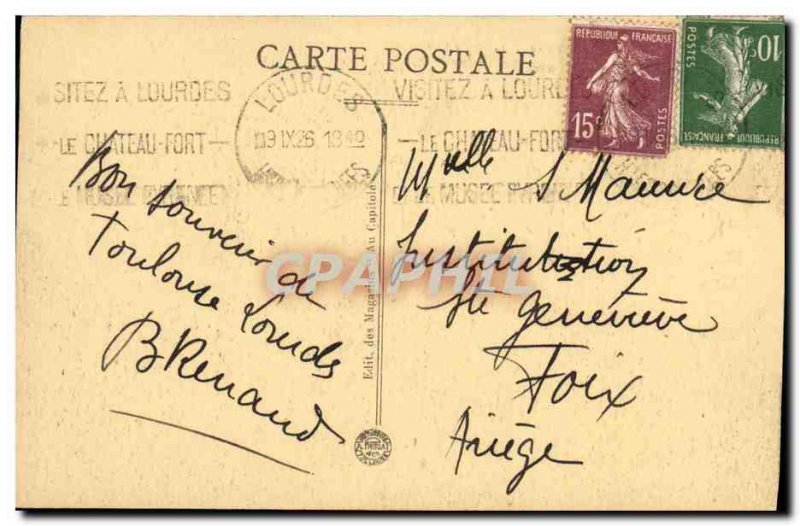 CARTE POSTALE
REPUBLIQUE FRANÇAISE
15c
POSTES
10c
POSTES
REPUBLIQUE FRANÇAISE
SITEZ À LOURDES
LE CHÂTEAU-FORT
LE MUSÉE PYRÉNÉE
LOURDES
19 IX 26
VISITEZ À LOURDES
LE CHÂTEAU-FORT
LE MUSÉE
Bon souvenir de
Toulouse Lourdes
B Renaud
Edit. des Magasins Au Capitole
Melle Maurice
Institution
Ste Geneviève
Foix
Ariège
CPAPHIL